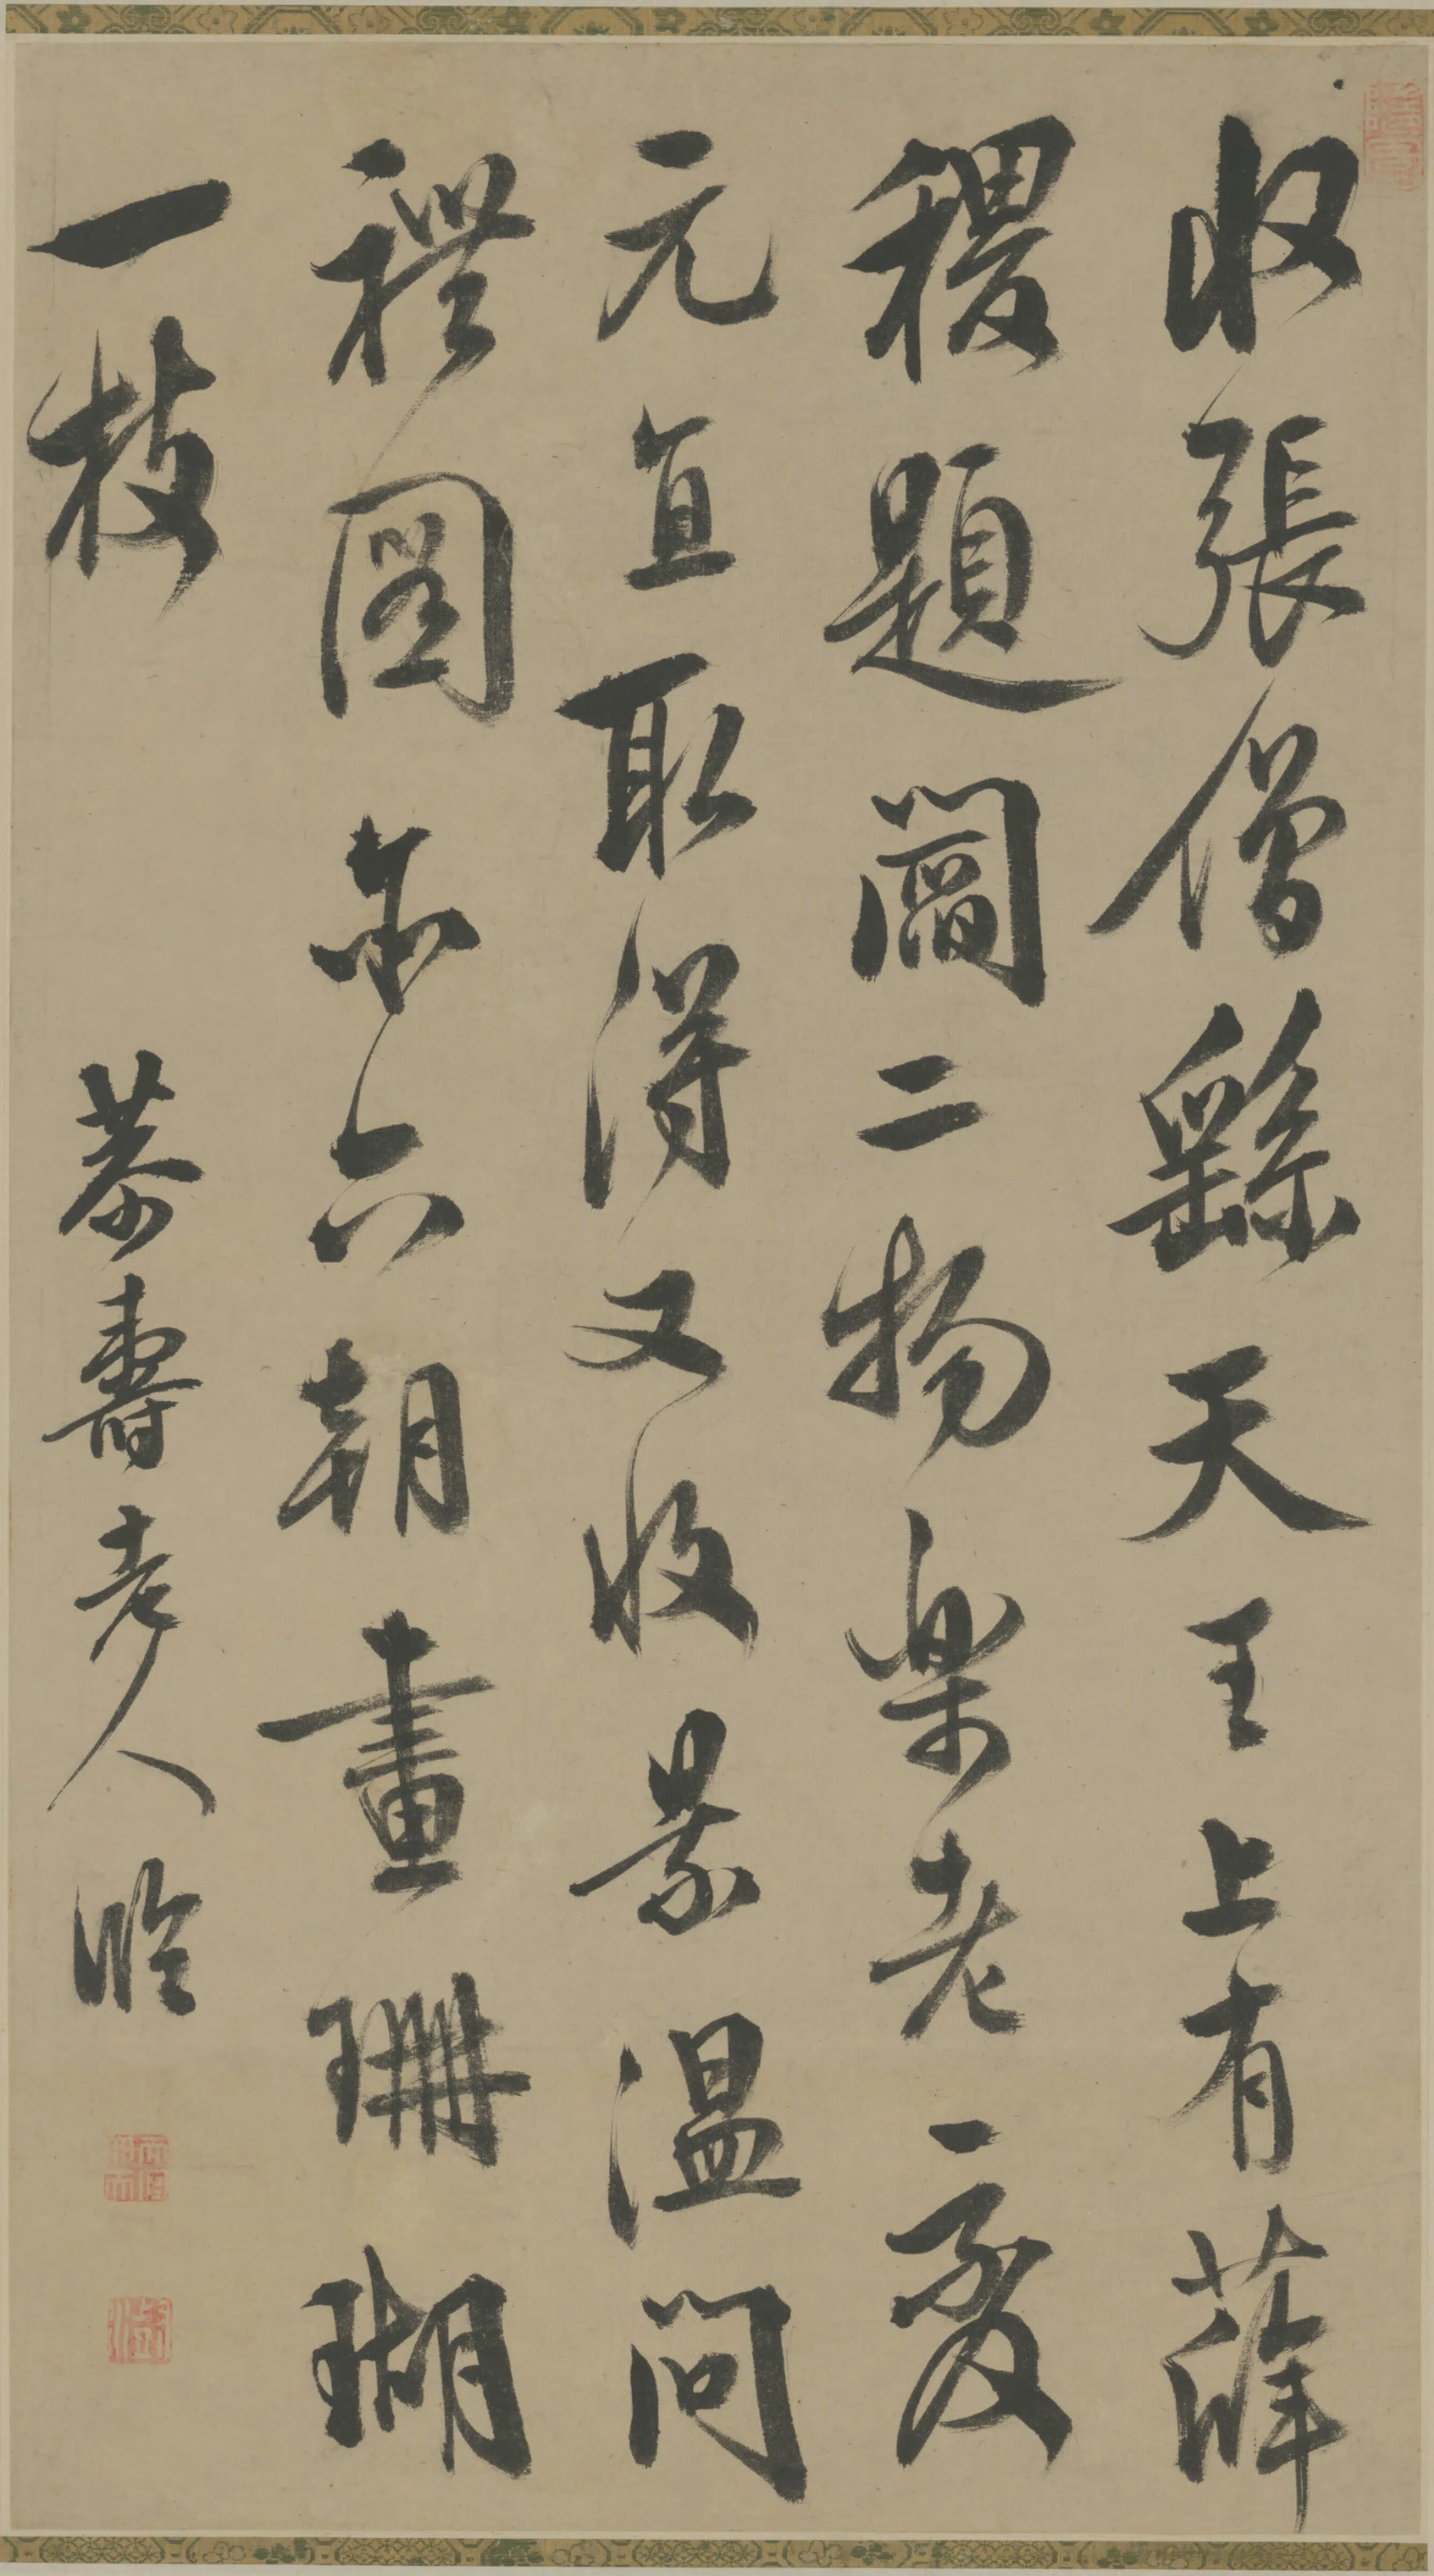 收張僧繇天王上有薛
稷題閻二物樂老處
元直取得又收景溫問
禮圖亦六朝畫珊瑚
一枝
恭壽老人臨